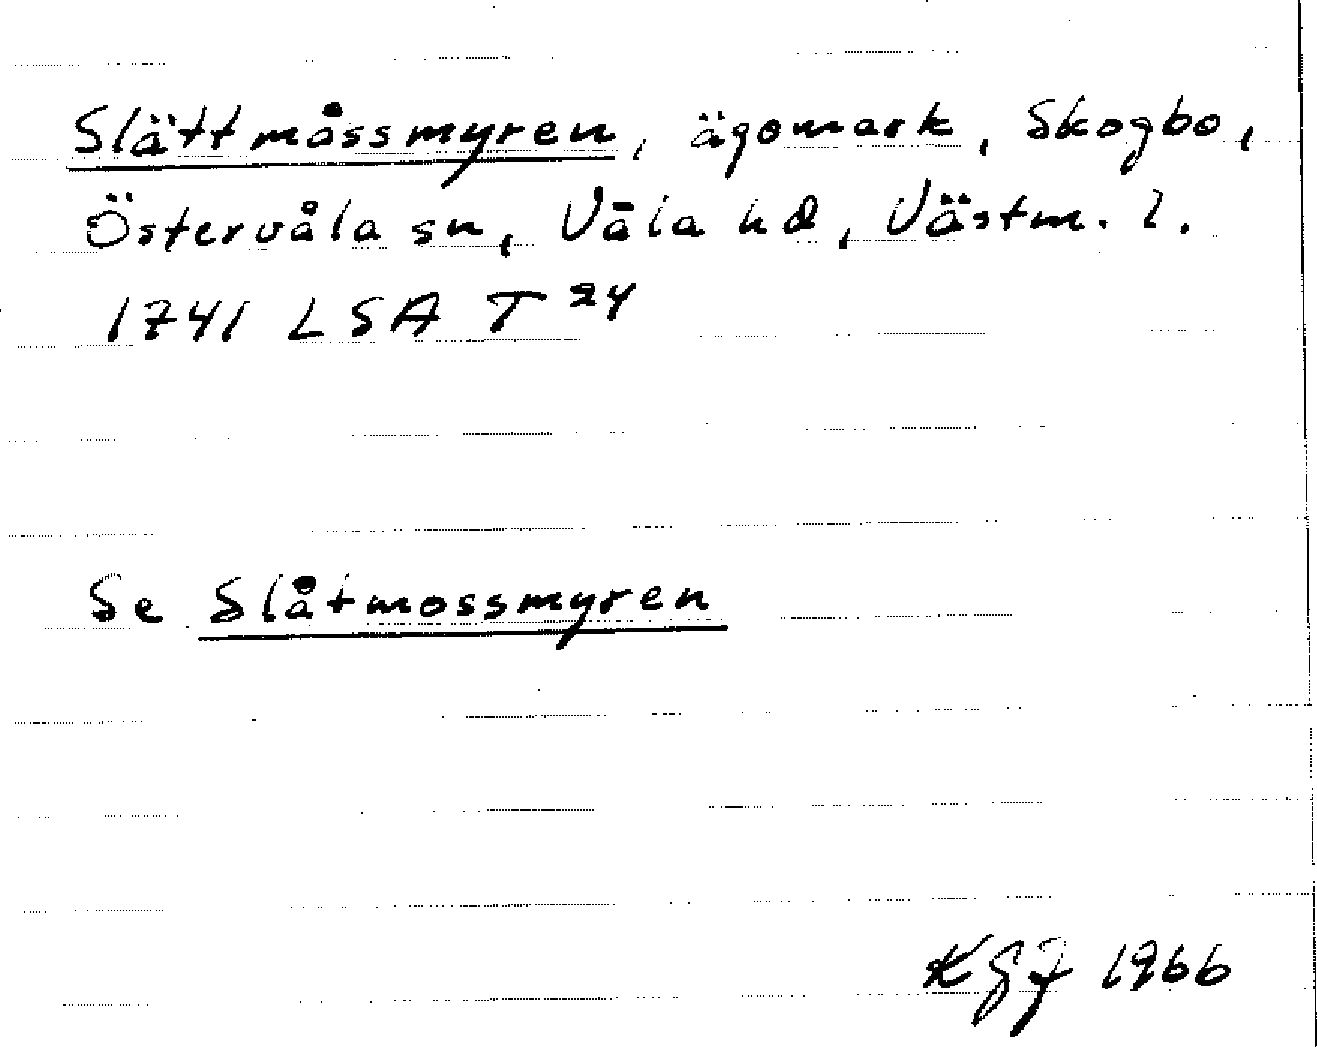 Slättmåssmyren, ägomark, Skogbo,
Östervåla sn, Våla hd, Västm. l.
1741 LSA T 24
Se Slåtmossmyren
KGJ 1966